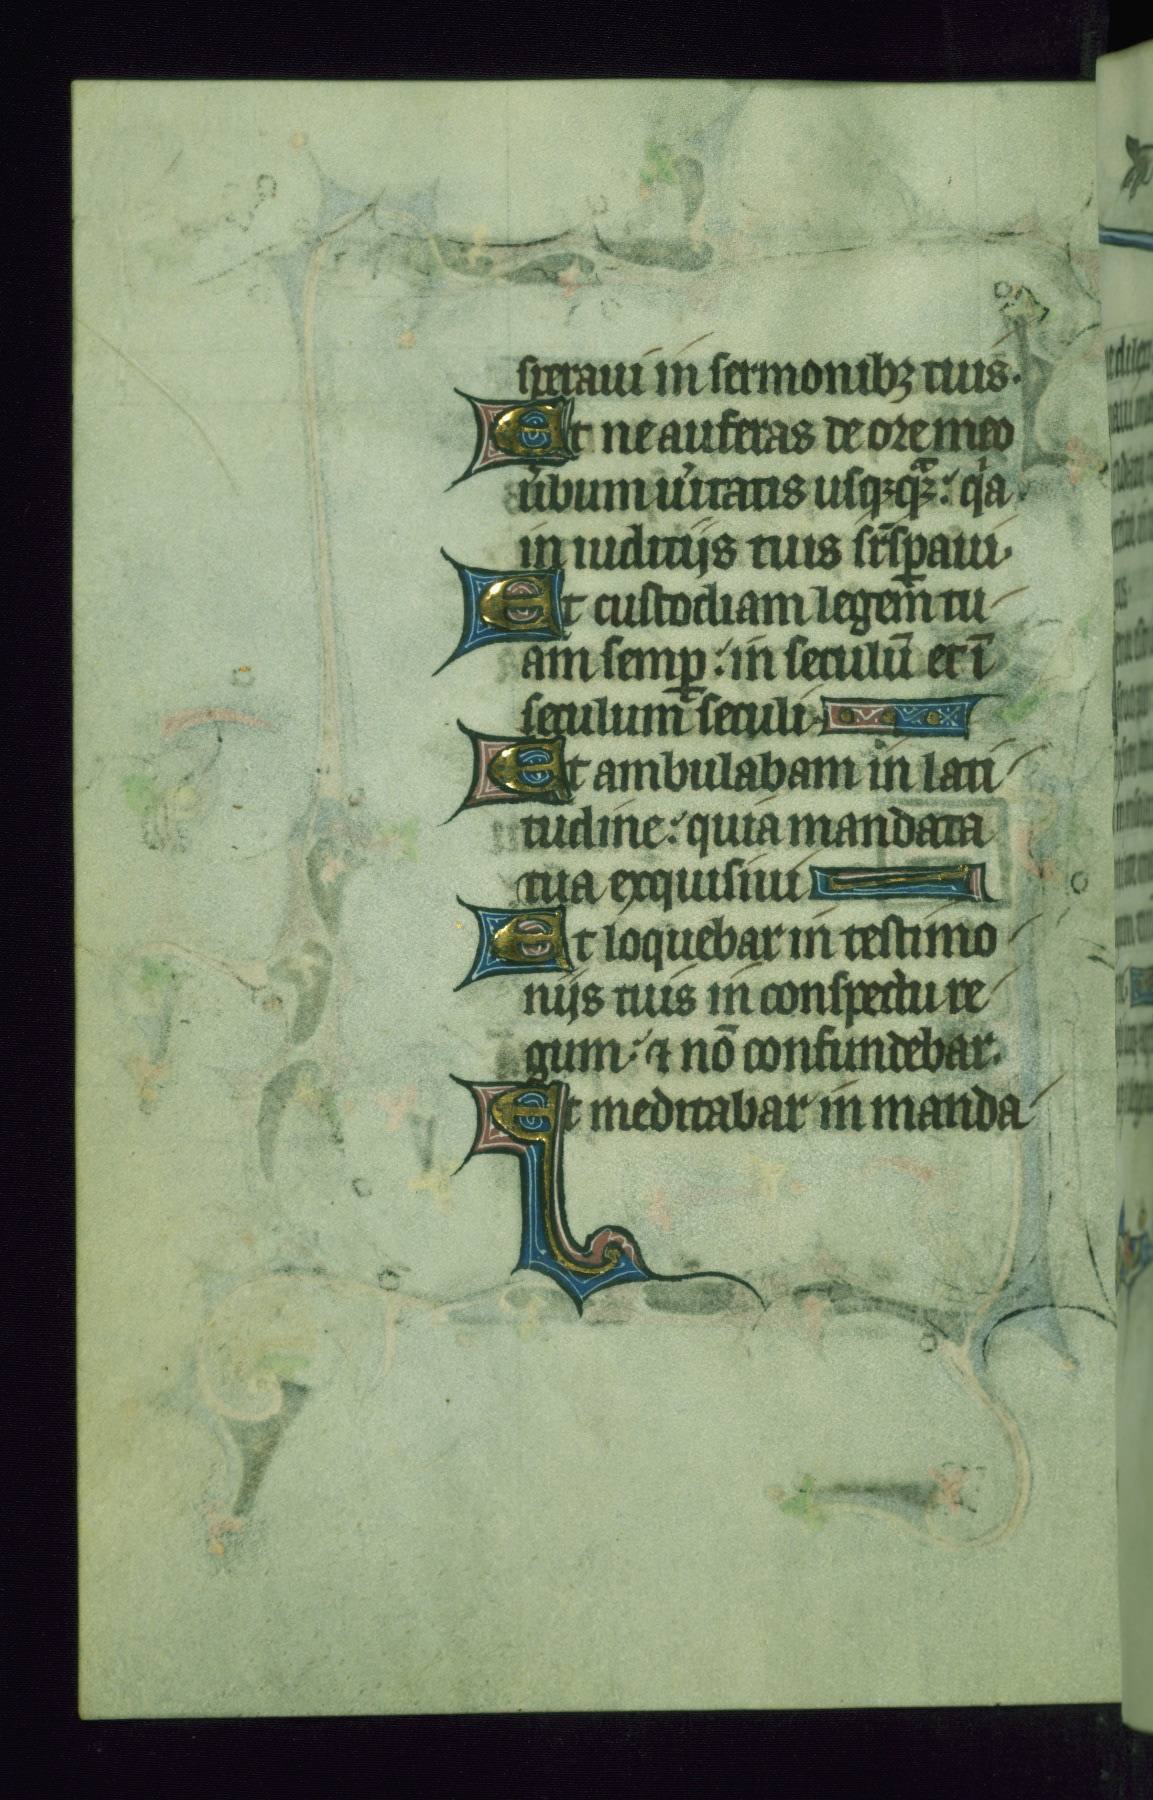 speraui in sermonibꝫ tuis.
Et ne auferas de ore meo
u̾bum u̾itatis usqꝫqꝫ: qͥa
in iudicijs tuis sr̄sꝑaui.
Et custodiam legem tu
am semꝑ: in seculū et ī
seculum seculi.
Et ambulabam in lati
tudine: quia mandata
tua exquisiui
Et loquebar in testimo
nijs tuis in conspectu re
gum: ⁊ nō confundebar.
Et meditabar in manda